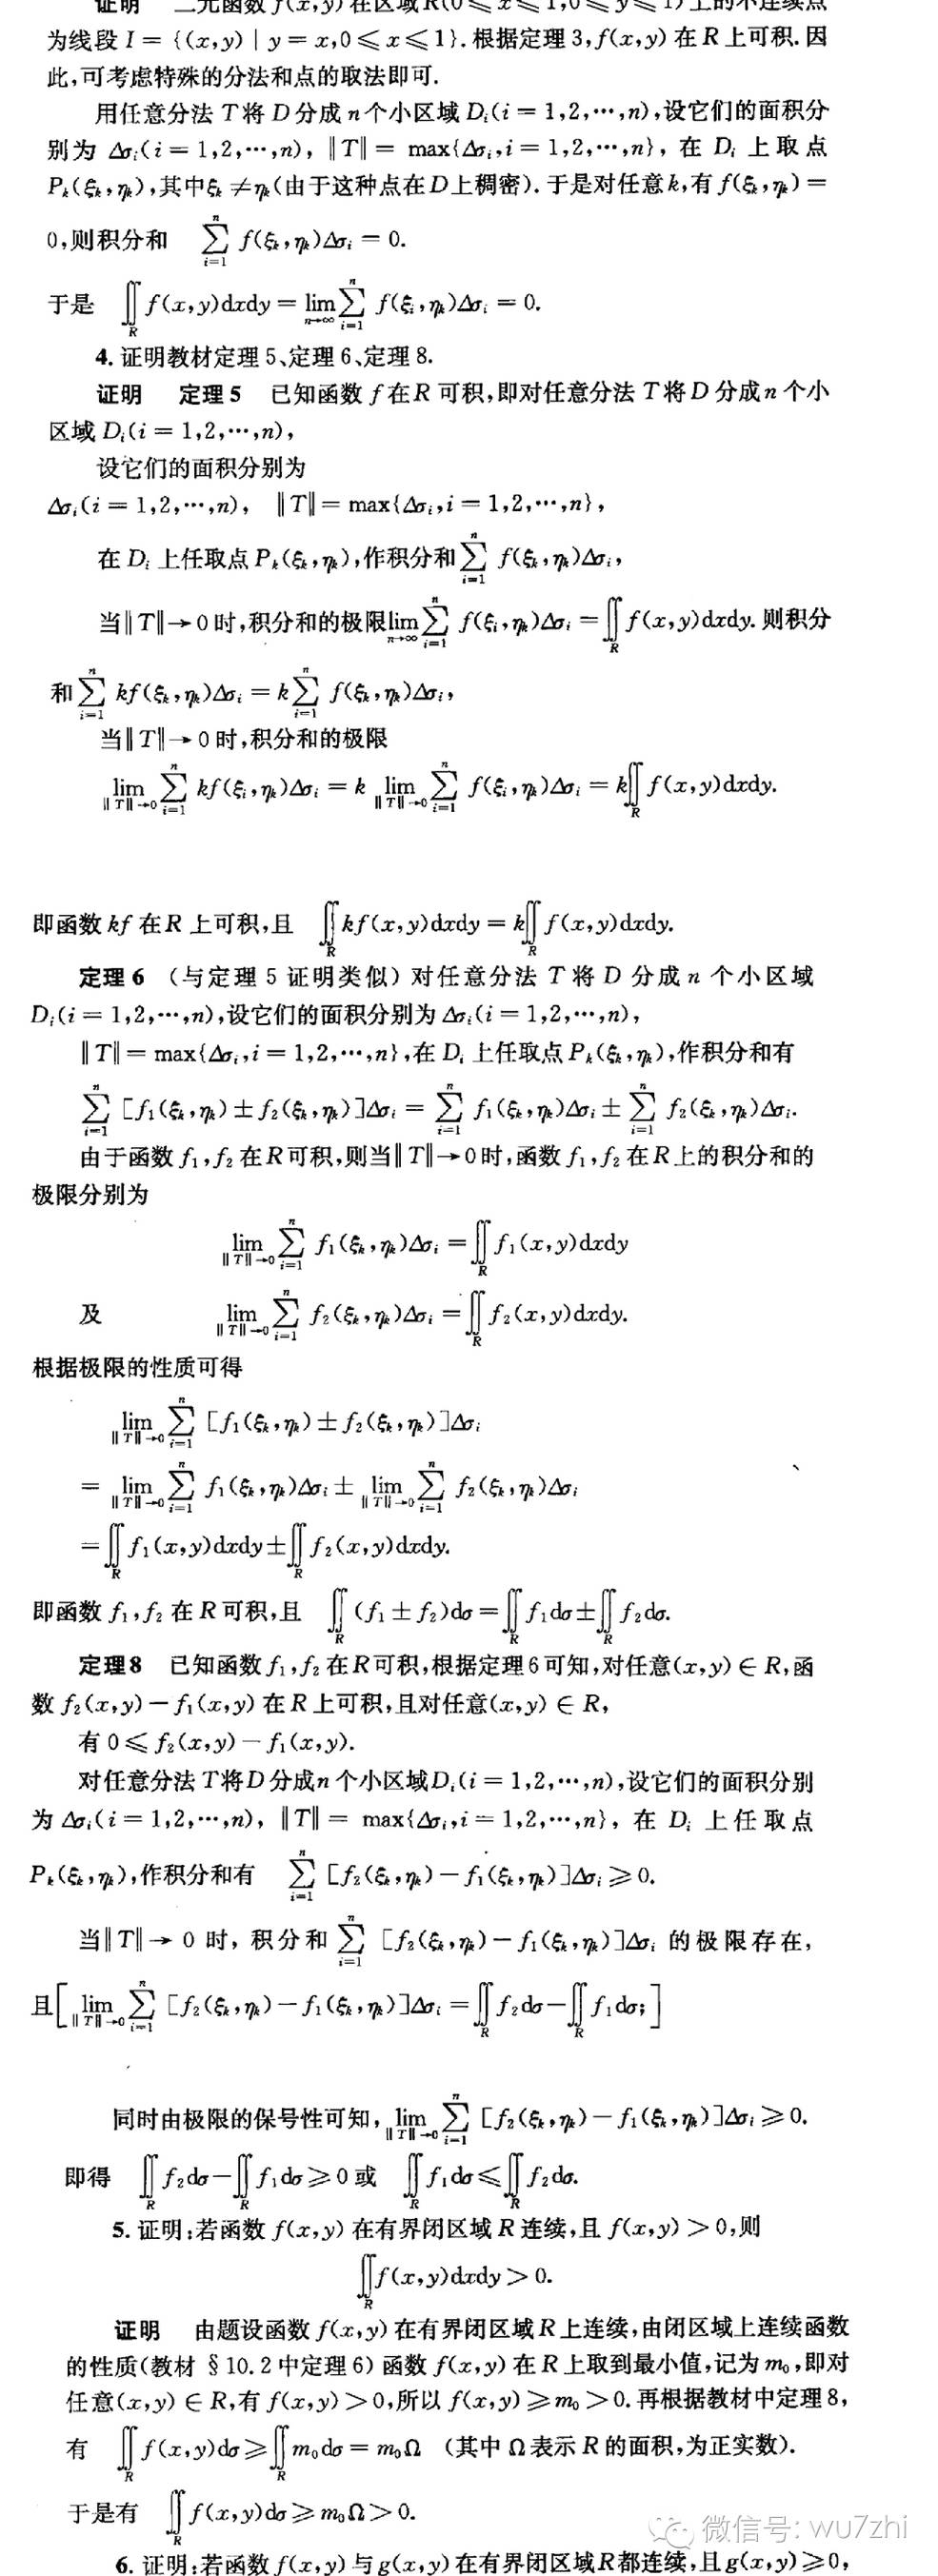 证明 二元函数 f(x,y) 在区域 R(0≤x≤1,0≤y≤1) 上的不连续点
为线段 I = {(x,y) | y = x,0≤x≤1}.根据定理3,f(x,y) 在 R 上可积.因
此,可考虑特殊的分法和点的取法即可.
用任意分法 T 将 D 分成 n 个小区域 D_i(i = 1,2,⋯,n),设它们的面积分
别为 Δσ_i(i = 1,2,⋯,n), ‖T‖ = max{Δσ_i,i = 1,2,⋯,n}, 在 D_i 上取点
P_k(ξ_k,η_k),其中ξ_k ≠η_k(由于这种点在D上稠密).于是对任意k,有 f(ξ_k,η_k) =
0,则积分和 ∑_{i=1}^{n} f(ξ_k,η_k)Δσ_i = 0.
于是 ∬_R f(x,y)dxdy = lim_{n→∞} ∑_{i=1}^{n} f(ξ_i,η_k)Δσ_i = 0.
4. 证明教材定理 5、定理 6、定理 8.
证明 定理 5 已知函数 f 在 R 可积,即对任意分法 T 将 D 分成 n 个小
区域 D_i(i = 1,2,⋯,n),
设它们的面积分别为
Δσ_i(i = 1,2,⋯,n), ‖T‖ = max{Δσ_i,i = 1,2,⋯,n},
在 D_i 上任取点 P_k(ξ_k,η_k),作积分和 ∑_{i=1}^{n} f(ξ_k,η_k)Δσ_i,
当‖T‖→0时,积分和的极限 lim_{n→∞} ∑_{i=1}^{n} f(ξ_i,η_k)Δσ_i = ∬_R f(x,y)dxdy. 则积分
和 ∑_{i=1}^{n} kf(ξ_k,η_k)Δσ_i = k∑_{i=1}^{n} f(ξ_k,η_k)Δσ_i,
当‖T‖→0时,积分和的极限
lim_{‖T‖→0} ∑_{i=1}^{n} kf(ξ_i,η_k)Δσ_i = k lim_{‖T‖→0} ∑_{i=1}^{n} f(ξ_i,η_k)Δσ_i = k∬_R f(x,y)dxdy.
即函数 kf 在 R 上可积,且 ∬_R kf(x,y)dxdy = k∬_R f(x,y)dxdy.
定理 6 (与定理 5 证明类似) 对任意分法 T 将 D 分成 n 个小区域
D_i(i = 1,2,⋯,n),设它们的面积分别为 Δσ_i(i = 1,2,⋯,n),
‖T‖ = max{Δσ_i,i = 1,2,⋯,n},在 D_i 上任取点 P_k(ξ_k,η_k),作积分和有
∑_{i=1}^{n} [f₁(ξ_k,η_k) ± f₂(ξ_k,η_k)]Δσ_i = ∑_{i=1}^{n} f₁(ξ_k,η_k)Δσ_i ± ∑_{i=1}^{n} f₂(ξ_k,η_k)Δσ_i.
由于函数 f₁,f₂ 在R可积,则当‖T‖→0时,函数 f₁,f₂ 在R上的积分和的
极限分别为
lim_{‖T‖→0} ∑_{i=1}^{n} f₁(ξ_k,η_k)Δσ_i = ∬_R f₁(x,y)dxdy
及 lim_{‖T‖→0} ∑_{i=1}^{n} f₂(ξ_k,η_k)Δσ_i = ∬_R f₂(x,y)dxdy.
根据极限的性质可得
lim_{‖T‖→0} ∑_{i=1}^{n} [f₁(ξ_k,η_k) ± f₂(ξ_k,η_k)]Δσ_i
= lim_{‖T‖→0} ∑_{i=1}^{n} f₁(ξ_k,η_k)Δσ_i ± lim_{‖T‖→0} ∑_{i=1}^{n} f₂(ξ_k,η_k)Δσ_i
= ∬_R f₁(x,y)dxdy ± ∬_R f₂(x,y)dxdy.
即函数 f₁,f₂ 在 R 可积,且 ∬_R (f₁ ± f₂)dσ = ∬_R f₁dσ ± ∬_R f₂dσ.
定理 8 已知函数 f₁,f₂ 在R可积,根据定理6可知,对任意(x,y) ∈ R,函
数 f₂(x,y) − f₁(x,y) 在 R 上可积,且对任意(x,y) ∈ R,
有 0 ≤ f₂(x,y) − f₁(x,y).
对任意分法 T将D分成n个小区域D_i(i = 1,2,⋯,n),设它们的面积分别
为 Δσ_i(i = 1,2,⋯,n), ‖T‖ = max{Δσ_i,i = 1,2,⋯,n}, 在 D_i 上任取点
P_k(ξ_k,η_k),作积分和有 ∑_{i=1}^{n} [f₂(ξ_k,η_k) − f₁(ξ_k,η_k)]Δσ_i ≥ 0.
当‖T‖→ 0 时, 积分和 ∑_{i=1}^{n} [f₂(ξ_k,η_k) − f₁(ξ_k,η_k)]Δσ_i 的极限存在,
且[lim_{‖T‖→0} ∑_{i=1}^{n} [f₂(ξ_k,η_k) − f₁(ξ_k,η_k)]Δσ_i = ∬_R f₂dσ − ∬_R f₁dσ;]
同时由极限的保号性可知, lim_{‖T‖→0} ∑_{i=1}^{n} [f₂(ξ_k,η_k) − f₁(ξ_k,η_k)]Δσ_i ≥ 0.
即得 ∬_R f₂dσ − ∬_R f₁dσ ≥ 0 或 ∬_R f₁dσ ≤ ∬_R f₂dσ.
5. 证明:若函数 f(x,y) 在有界闭区域 R 连续,且 f(x,y) > 0,则
∬_R f(x,y)dxdy > 0.
证明 由题设函数 f(x,y) 在有界闭区域 R 上连续,由闭区域上连续函数
的性质(教材 §10.2 中定理 6) 函数 f(x,y) 在 R 上取到最小值,记为 m₀,即对
任意(x,y) ∈ R,有 f(x,y) > 0,所以 f(x,y) ≥ m₀ > 0. 再根据教材中定理 8,
有 ∬_R f(x,y)dσ ≥ ∬_R m₀dσ = m₀Ω (其中 Ω 表示 R 的面积,为正实数).
于是有 ∬_R f(x,y)dσ ≥ m₀Ω > 0.
微信号: wu7zhi
6. 证明:若函数 f(x,y) 与 g(x,y) 在有界闭区域R都连续,且 g(x,y) ≥ 0,